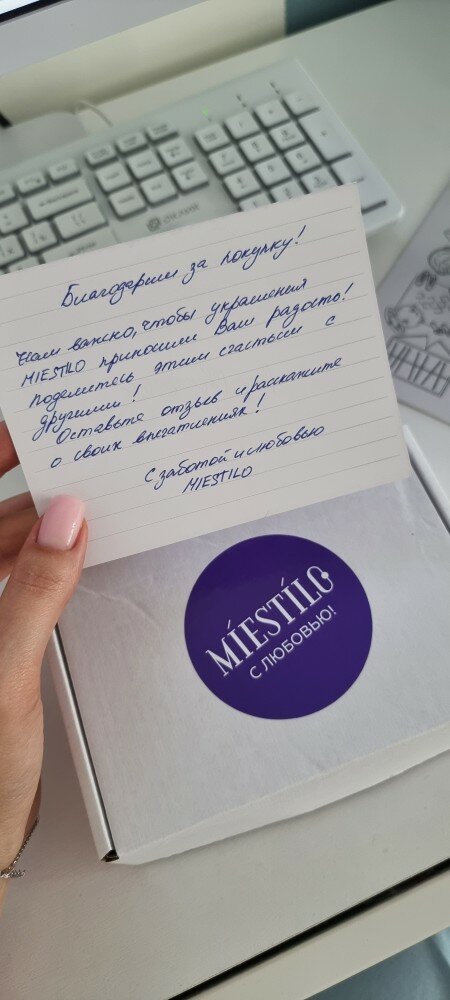 Благодарим за покупку!
Нам важно, чтобы украшения
MIESTILO приносили Вам радость!
Поделитесь этим счастьем с
другими!
Оставьте отзыв и расскажите
о своих впечатлениях!
С заботой и любовью
MIESTILO
MÍESTÍLO
С ЛЮБОВЬЮ!
ОКЛИК